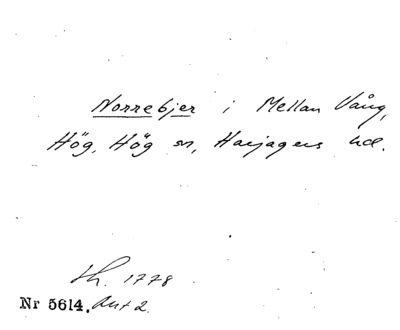 Norrebjer i Mellan Vång,
Hög, Hög sn, Harjagers hd.
Sk. 1778
Nr 5614. Akt 2.